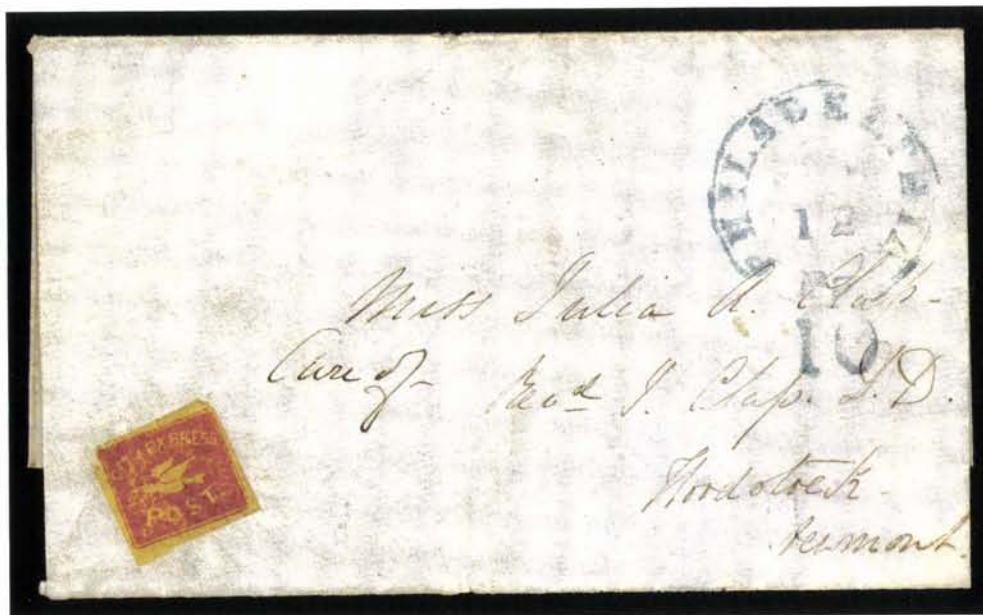 PHILADELPHIA
12
10
Miss Julia A.
Care of Revd J. Clap. D.
Woodstock
Vermont.
EXPRESS
POST